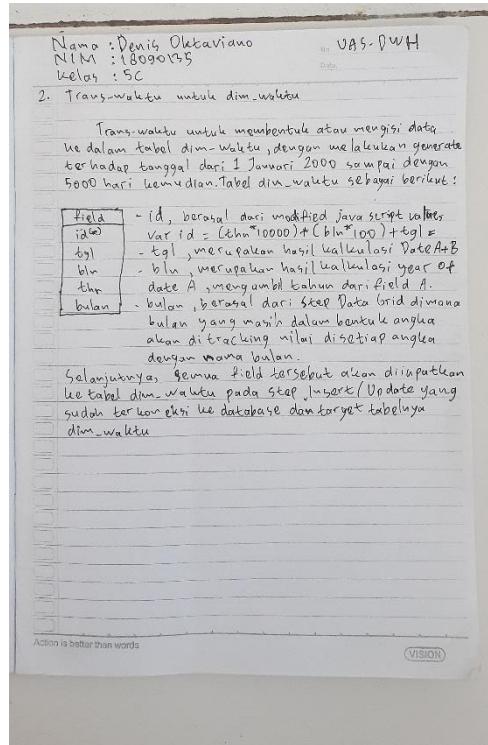 Nama : Denis Oktaviano
No
UAS-DWH
NIM : 18090135
Date
Kelas : 5C
2. Trans-waktu untuk dim_waktu
Trans-waktu untuk membentuk atau mengisi data
ke dalam tabel dim-waktu, dengan melakukan generate
terhadap tanggal dari 1 Januari 2000 sampai dengan
5000 hari kemudian. Tabel dim_waktu sebagai berikut :
field
id(*)
tgl
bln
thn
bulan
- id, berasal dari modified java script values
var id = (thn*10000)+(bln*100)+tgl =
- tgl, merupakan hasil kalkulasi Date A+B
- bln, merupakan hasil kalkulasi year of
date A, mengambil tahun dari field A.
- bulan, berasal dari step Data Grid dimana
bulan yang masih dalam bentuk angka
akan di tracking nilai disetiap angka
dengan nama bulan.
Selanjutnya, semua field tersebut akan diinputkan
ke tabel dim_waktu pada step Insert/Update yang
sudah terkoneksi ke database dan target tabelnya
dim_waktu
Action is better than words
VISION